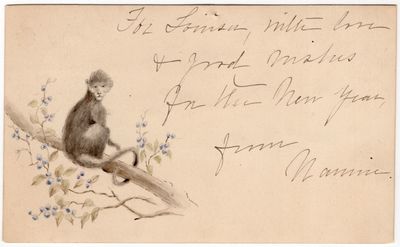 For Louisa, with love
& good wishes
for the New Year,
from
Nannie.